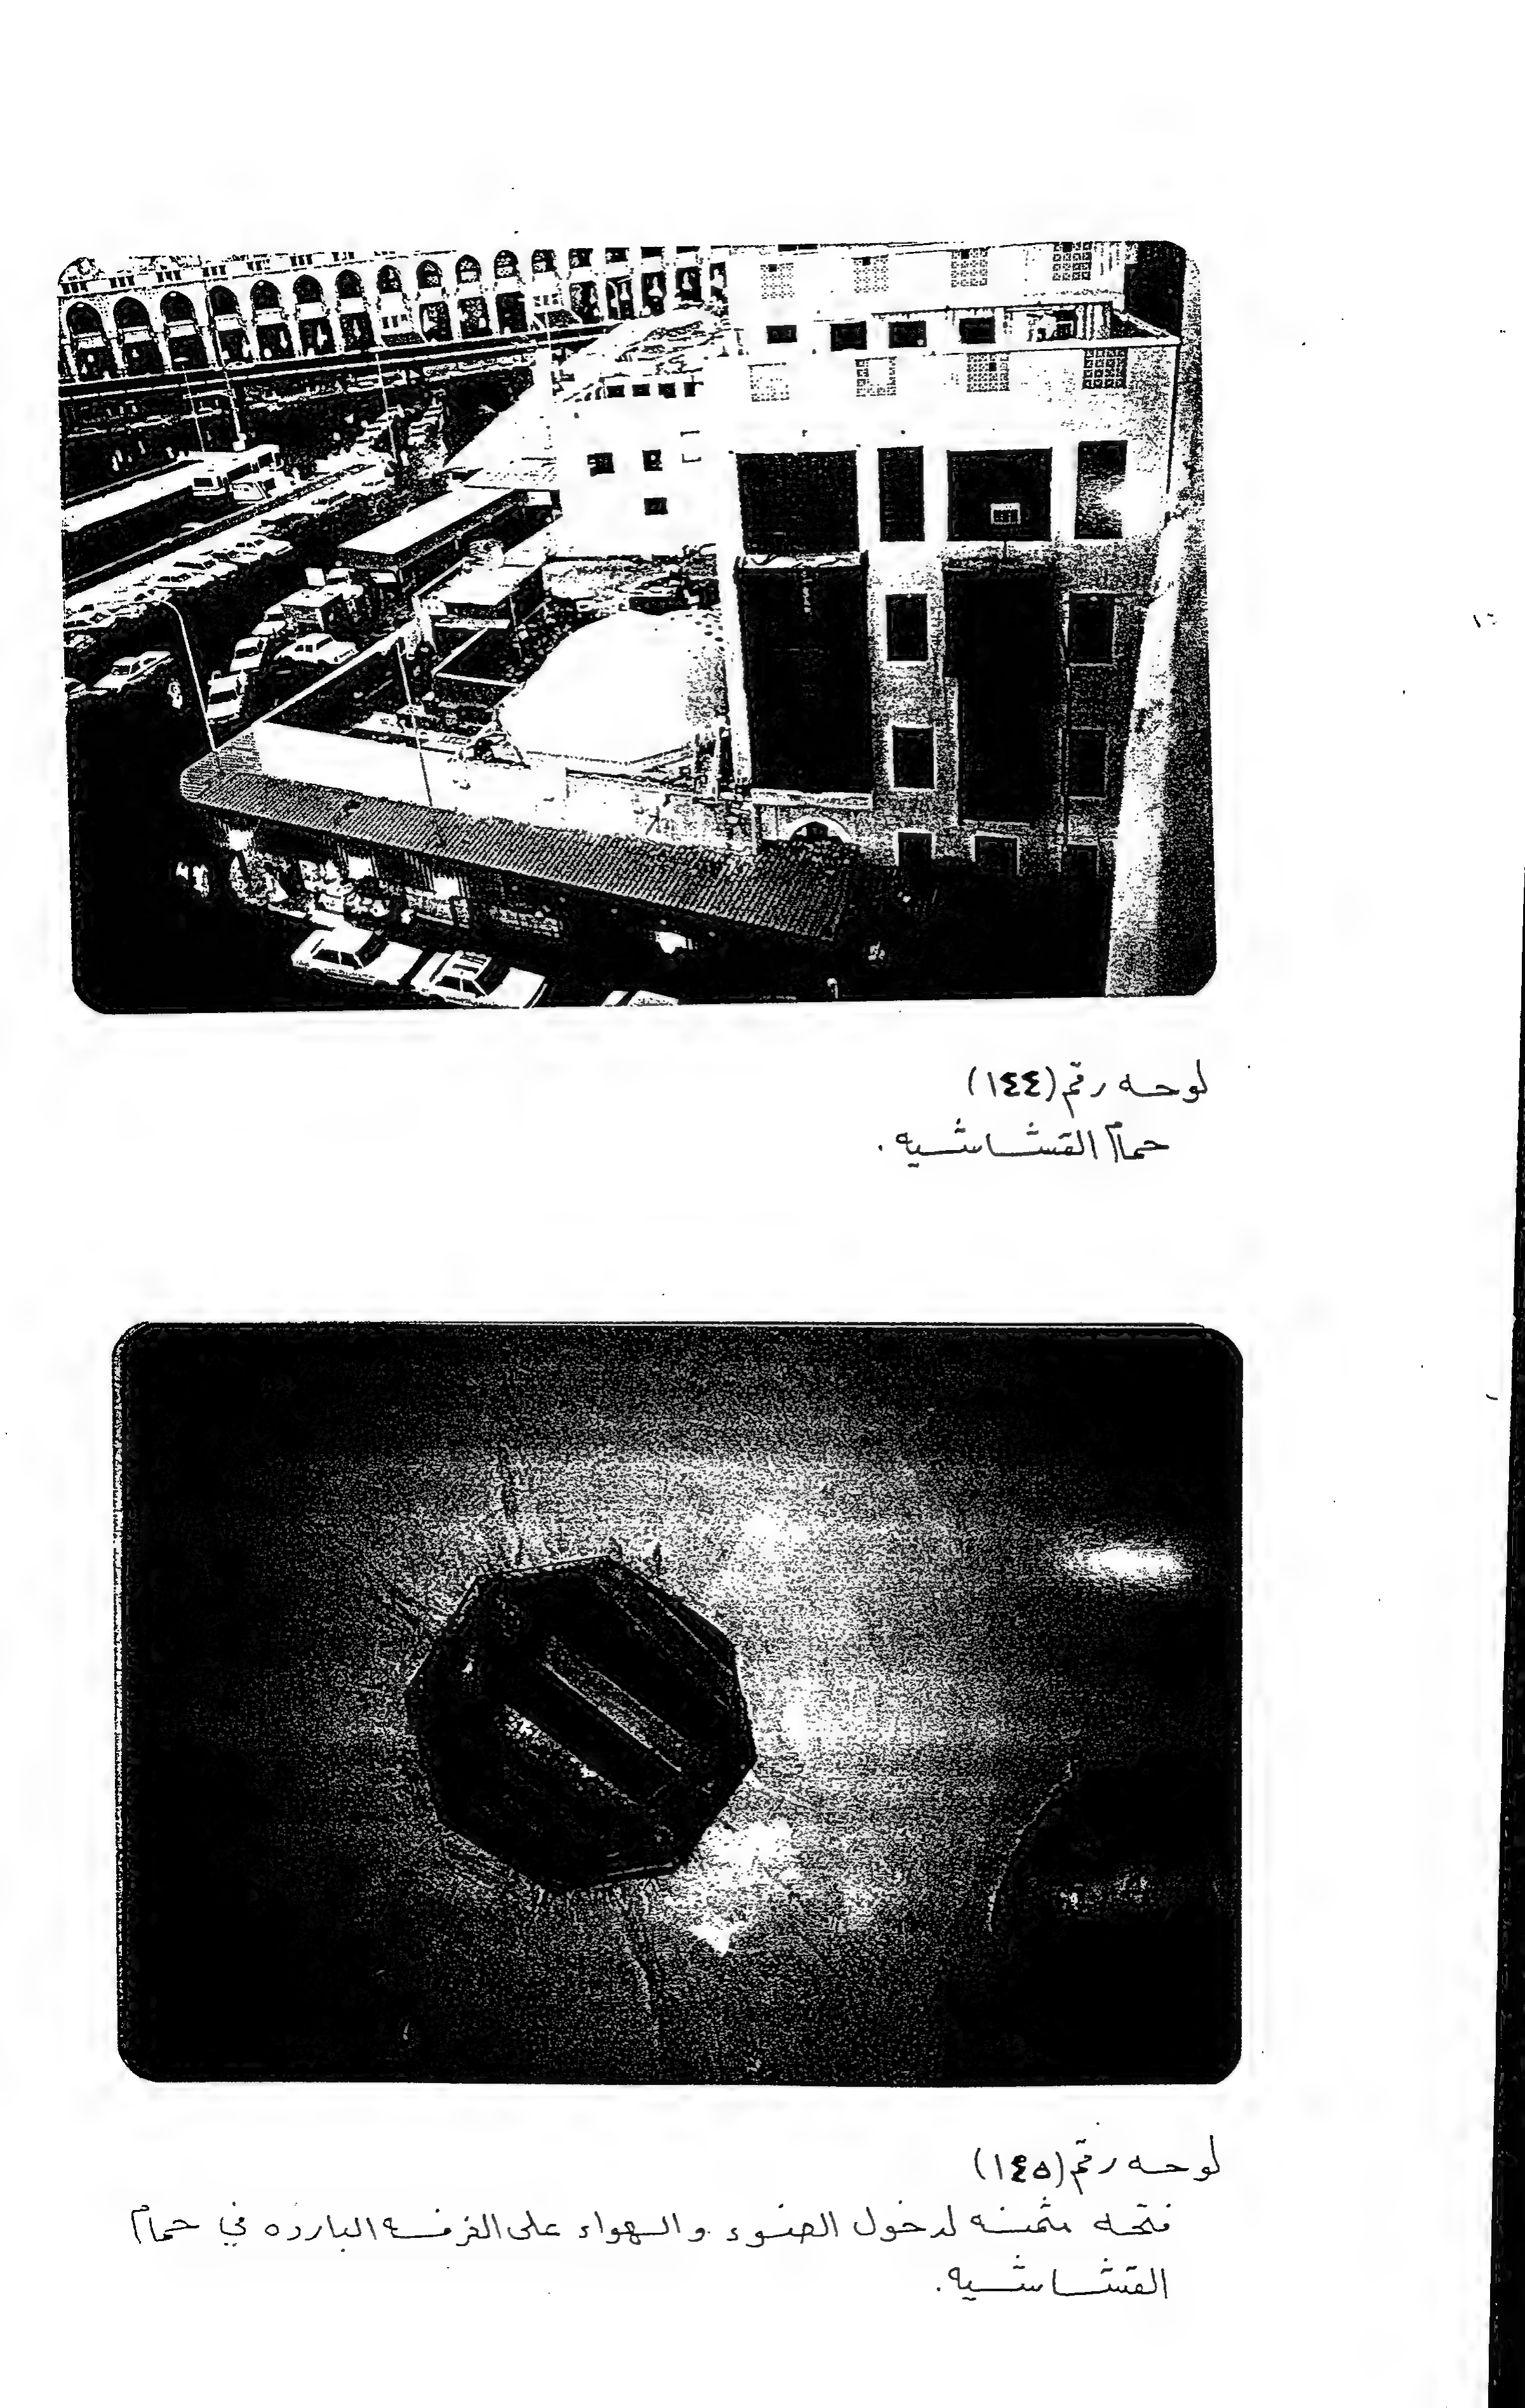 لوحه رقم (١٤٤)
حمام القشاشيه .
لوحه رقم (١٤٥)
فتحه مثمنه لدخول الضوء والهواء على الغرفه البارده في حمام
القشاشيه .